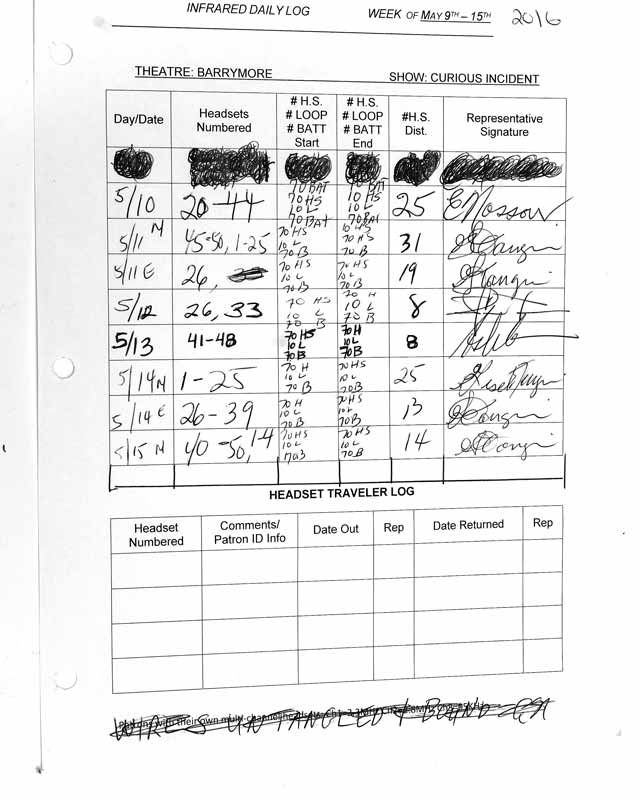 INFRARED DAILY LOG WEEK OF MAY 9TH – 15TH 2016
THEATRE: BARRYMORE SHOW: CURIOUS INCIDENT
Day/Date Headsets Numbered # H.S. # LOOP # BATT Start # H.S. # LOOP # BATT End #H.S. Dist. Representative Signature
70 BAT 70 BAT
5/10 20-44 70 HS 10 L 70 BAT 70 HS 10 L 70 BAT 25
5/11 M 45-50, 1-25 70 HS 10 L 70 B 70 HS 10 L 70 B 31
5/11 E 26, 70 HS 10 L 70 B 70 HS 10 L 70 B 19
5/12 26, 33 70 HS 10 L 70 B 70 H 10 L 70 B 8
5/13 41-48 70 HS 10 L 70 B 70 H 10 L 70 B 8
5/14 M 1-25 70 H 10 L 70 B 70 HS 10 L 70 B 25
5/14 E 26-39 70 H 10 L 70 B 70 HS 10 L 70 B 13
5/15 M 40-50, 1-4 70 HS 10 L 70 B 70 HS 10 L 70 B 14
HEADSET TRAVELER LOG
Headset Numbered Comments/ Patron ID Info Date Out Rep Date Returned Rep
WIRES UNTANGLED & BOUND